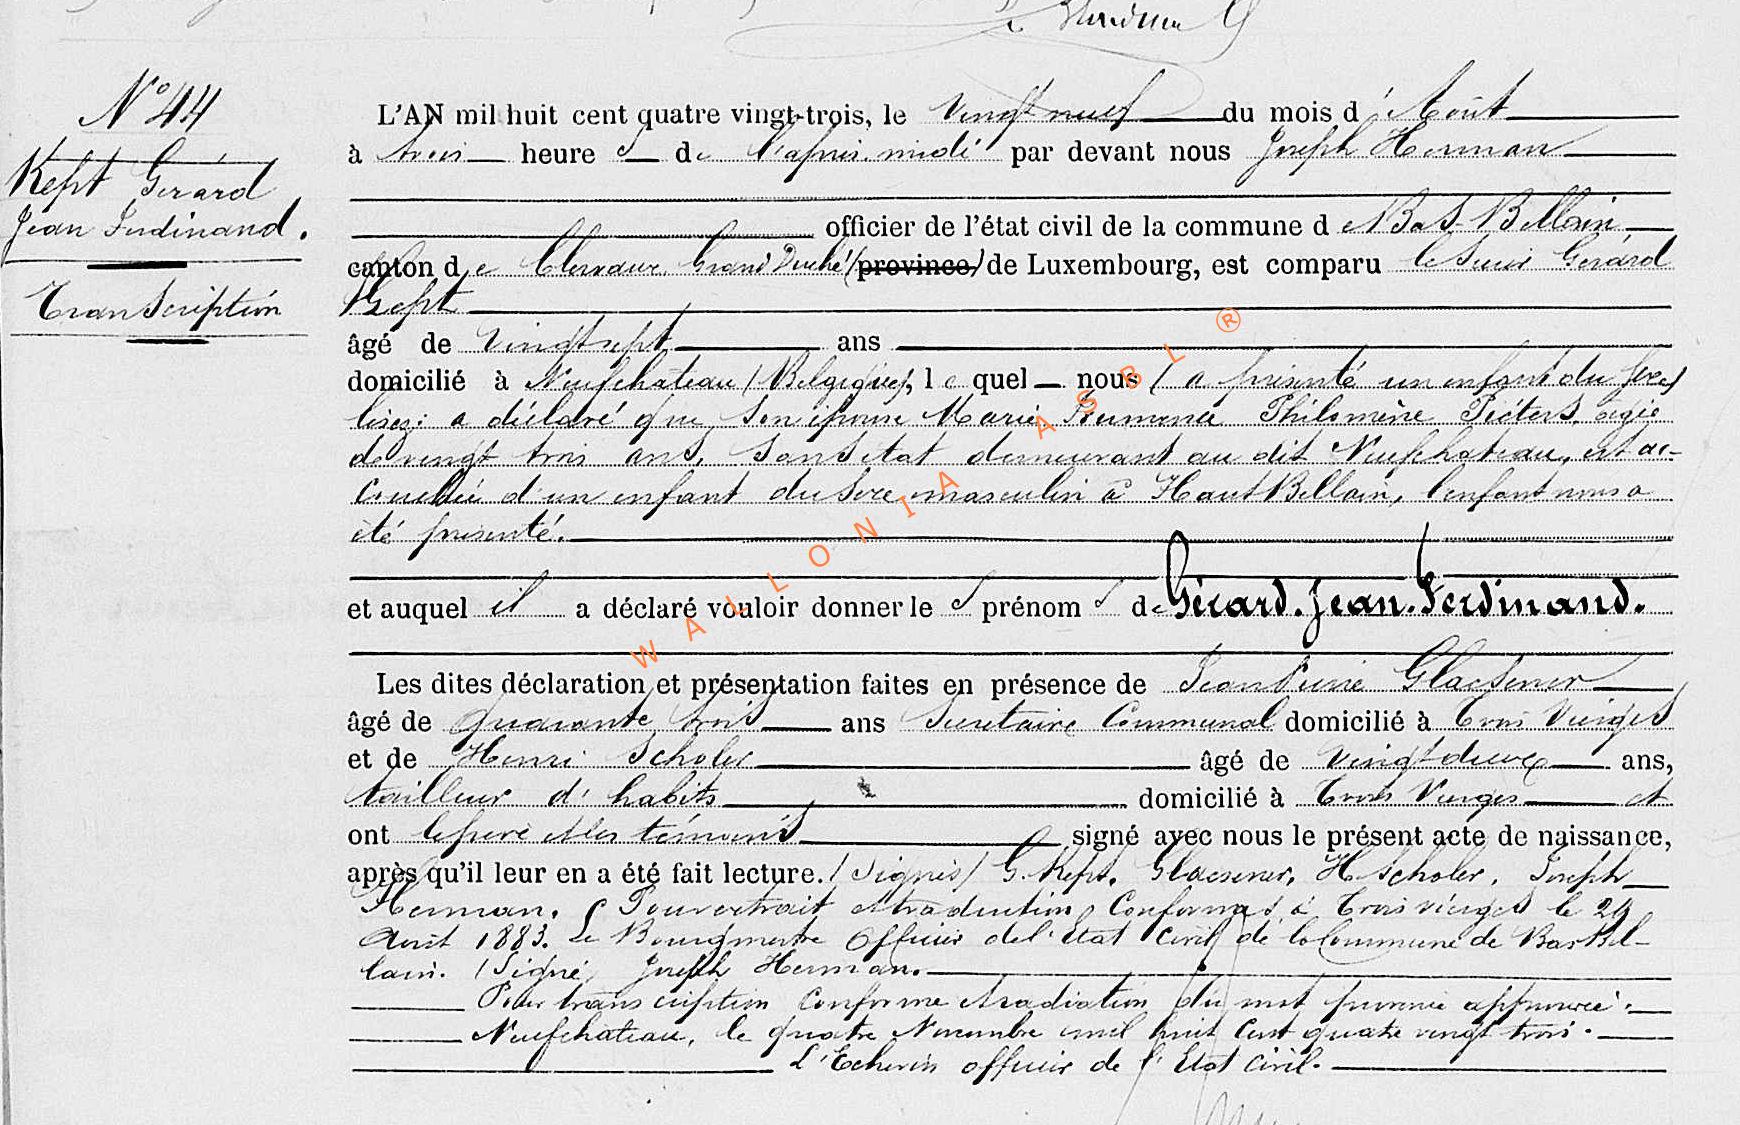 N° 44
Kept Gérard
Jean Ferdinand.
Transcription
L'AN mil huit cent quatre vingt-trois, le Vingt neuf du mois d'Août
à trois heures de l'après-midi par devant nous Joseph Herman
officier de l'état civil de la commune de Bas-Bellain
canton de Clervaux Grand Duché (province) de Luxembourg, est comparu le Sieur Gérard
Kept
âgé de Vingt sept ans
domicilié à Neufchateau (Belgique), lequel nous (a présenté un enfant du sexe)
lisez: a déclaré que son épouse Marie Philomène Pieters, agée
de vingt trois ans, sans état demeurant au dit Neufchateau, est ac-
couchée d'un enfant du sexe masculin à Haut Bellain, l'enfant nous a
été présenté.
et auquel il a déclaré vouloir donner les prénoms de Gérard. Jean. Ferdinand.
Les dites déclaration et présentation faites en présence de Jean Pierre Glaesener
âgé de quarante trois ans Secrétaire Communal domicilié à Trois Vierges
et de Henri Scholer âgé de vingt deux ans,
tailleur d'habits domicilié à Trois Vierges et
ont le père et les témoins signé avec nous le présent acte de naissance,
après qu'il leur en a été fait lecture. (Signés) G. Kept. Glaesener, H Scholer, Joseph
Herman. Pour extrait et traduction Conformes, à Trois vierges le 29
Août 1883. Le Bourgmestre Officier de l'Etat Civil de la Commune de Bas Bel-
lain. (Signé) Joseph Herman.
Pour transcription conforme et radiation du mot province approuvée.
Neufchateau, le quatre Novembre mil huit cent quatre vingt trois.
L'Echevin officier de l'Etat Civil.
WALLONIA ASBL ®